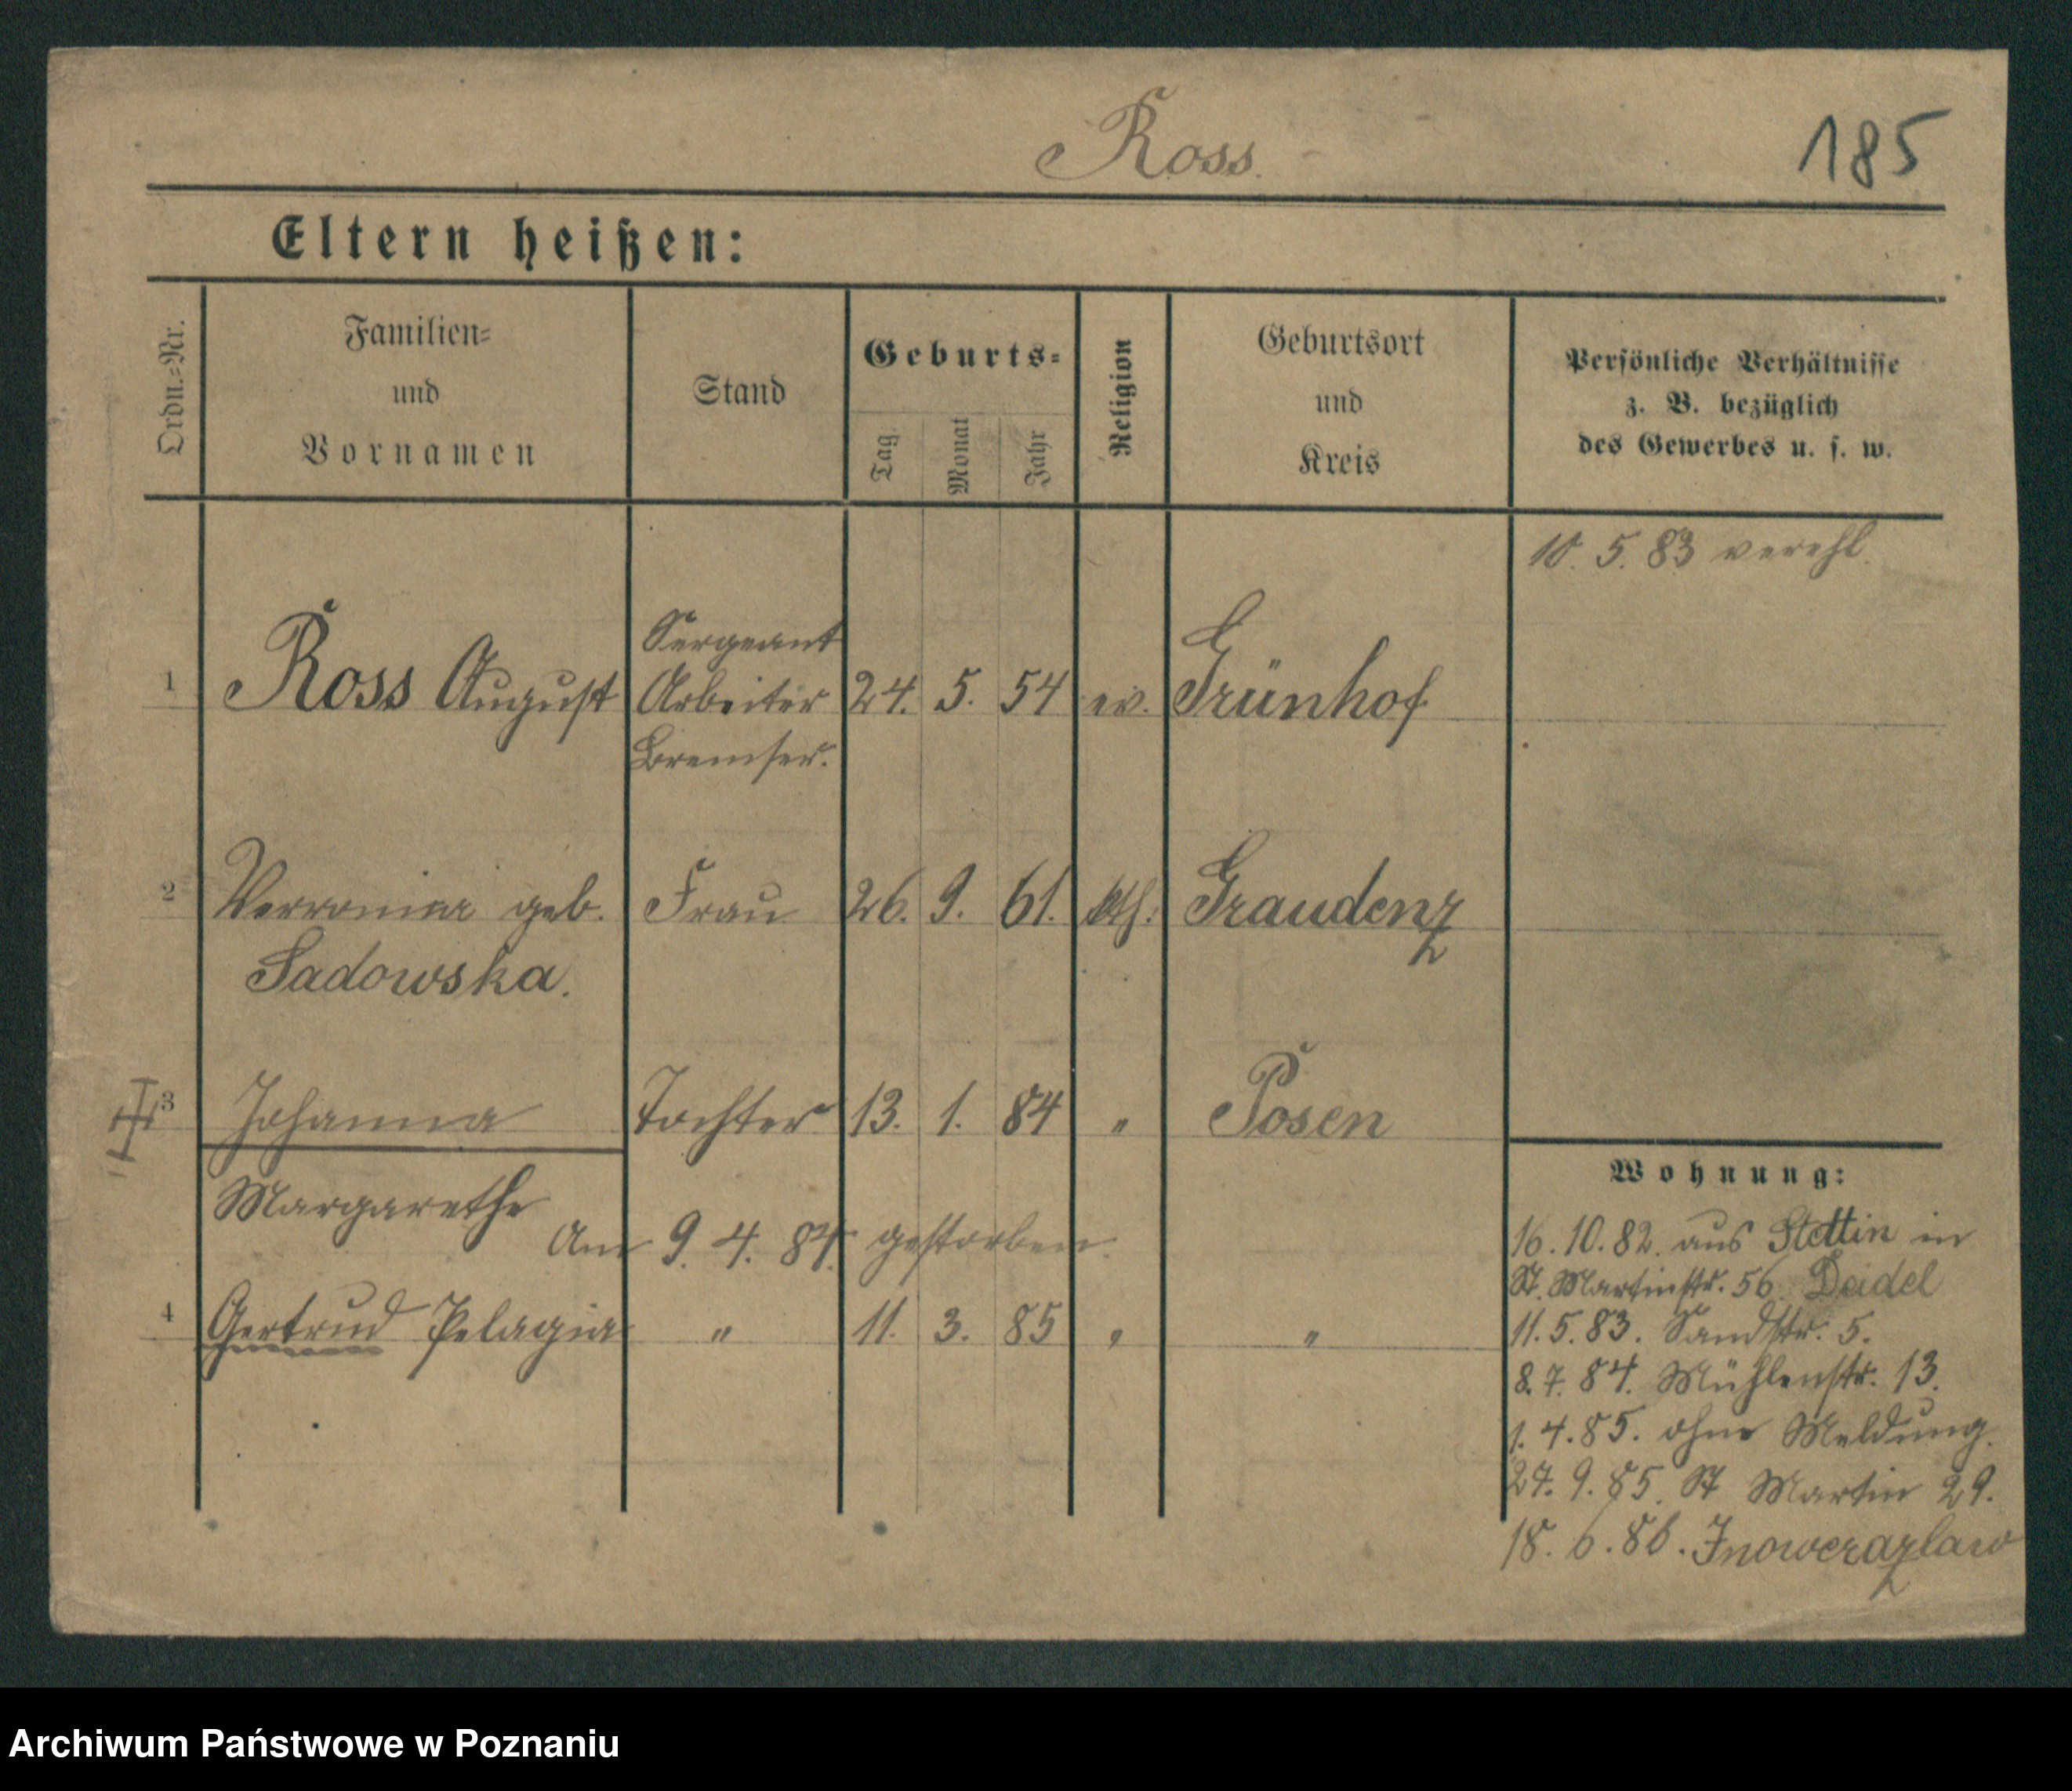 Ross.
185
Eltern heißen:
Ordn.=Nr.
Familien=
und
Vornamen
Stand
Geburts=
Tag
Monat
Jahr
Religion
Geburtsort
und
Kreis
Persönliche Verhältnisse
z. B. bezüglich
des Gewerbes u. s. w.
10. 5. 83 verehl.
Sergeant
1 Ross August Arbeiter 24. 5. 54 ev. Grünhof
Bremser.
2 geb. Frau 26. 9. 61. kth. Graudenz
Sadowska.
3 Johanna Tochter 13. 1. 84 " Posen
Margarethe
Am 9. 4. 84. gestorben.
4 Gertrud Pelagia " 11. 3. 85 " "
Wohnung:
16. 10. 82. aus Stettin in
St. Martinstr. 56. Deidel
11. 5. 83. Sandstr. 5.
8. 7. 84. Mühlenstr. 13.
1. 4. 85. ohne Meldung.
27. 9. 85. St Martin 29.
18. 6. 86. Inowerazlaw
Archiwum Państwowe w Poznaniu